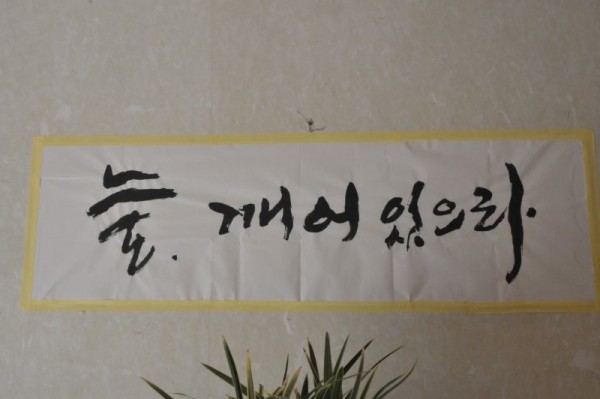 늘. 깨어 있으라.